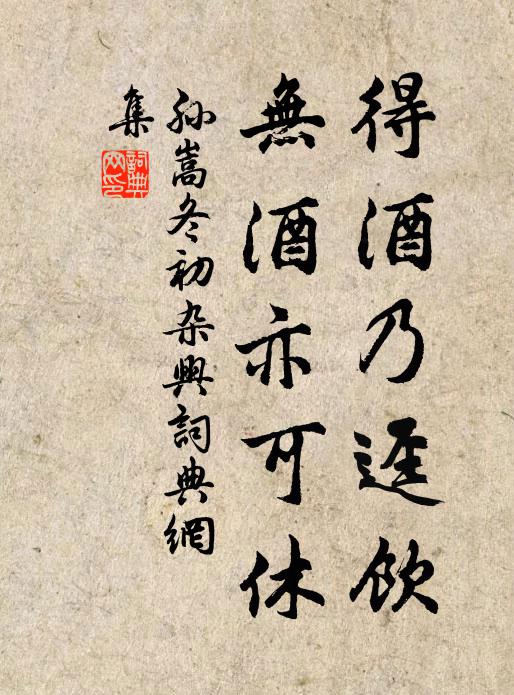 得酒乃逕飲
無酒亦可休
孫嵩冬初杂興詞典網
集
詞典
网印